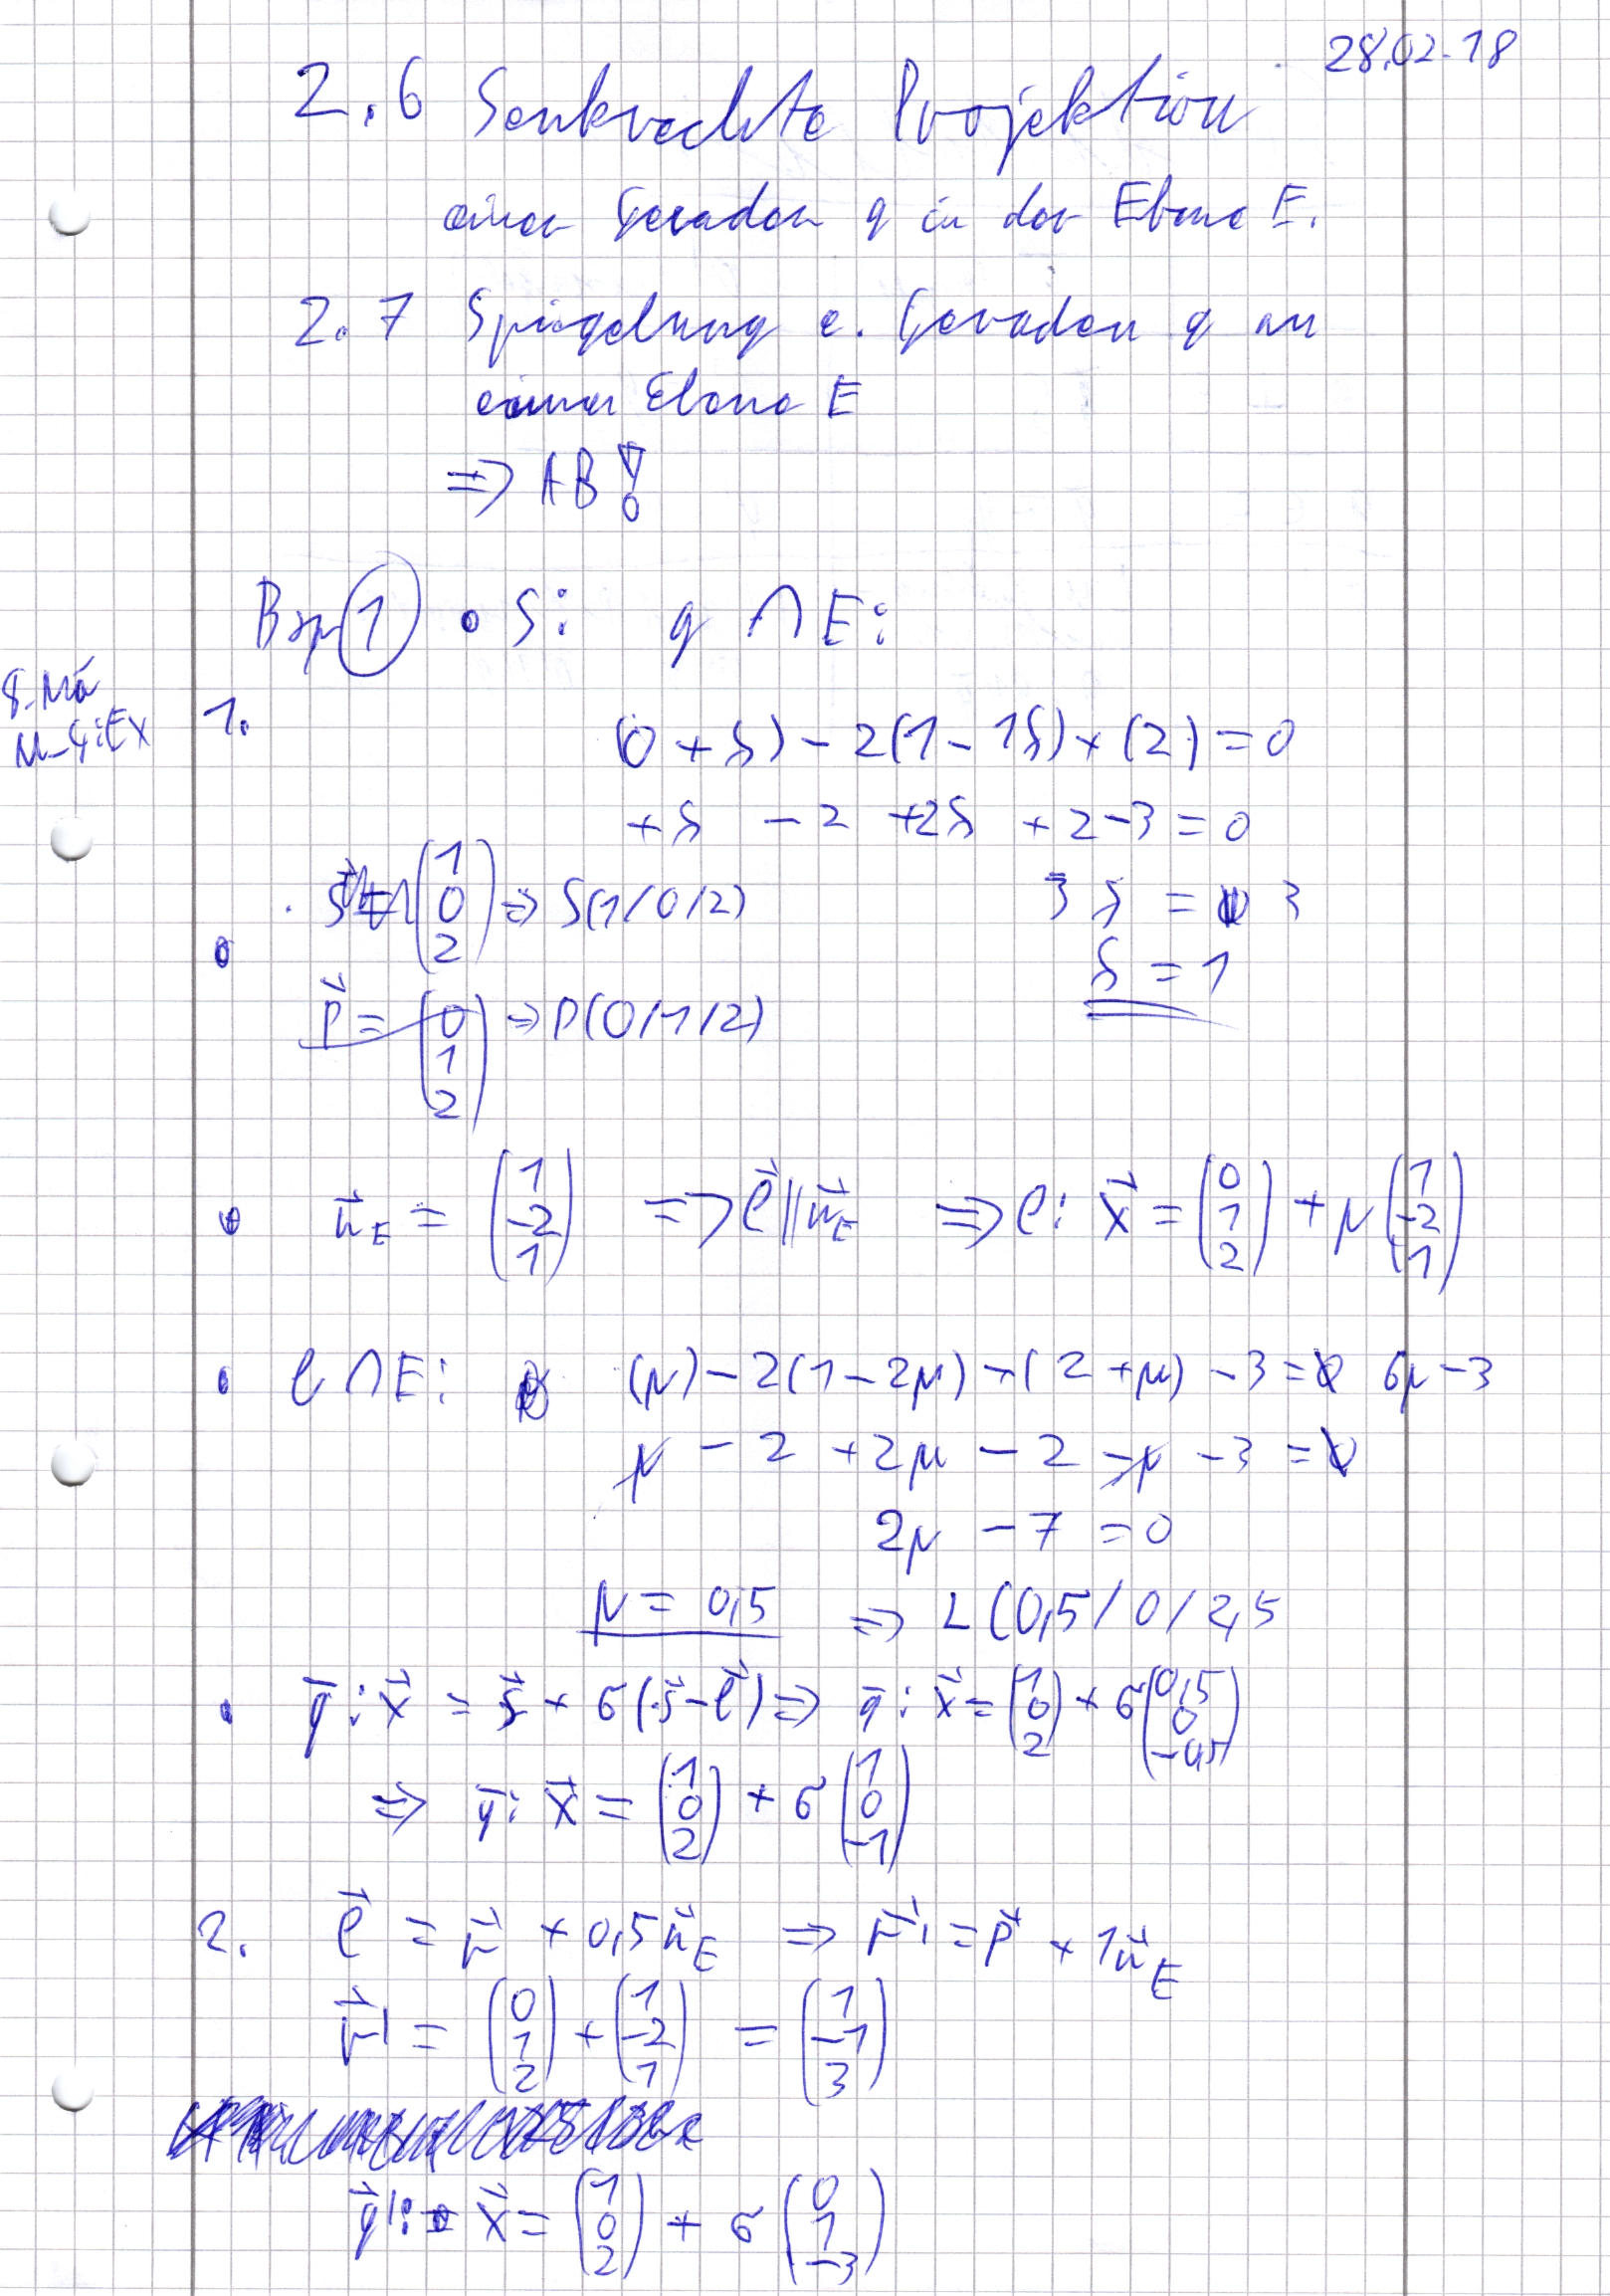 28.02.18
2.6 Senkrechte Projektion
einer Geraden g in der Ebene E.
2.7 Spiegelung e. Geraden g an
einer Ebene E
=> AB!
Bsp ① • S: g ∩ E:
8. Mä
M-4:Ex
1. (0 + s) - 2(1 - 1s) + (2) = 0
+ s - 2 + 2s + 2 - 3 = 0
(1 0 2) => S(1/0/2) 3 s = 3
s = 1
p⃗ = (0 1 2) => P(0/1/2)
• n⃗_E = (1 -2 1) => l⃗ || n⃗_E => l: x⃗ = (0 1 2) + μ (1 -2 1)
• l ∩ E: (μ) - 2(1 - 2μ) + (2 + μ) - 3 = 6μ - 3
μ - 2 + 2μ - 2 - μ - 3 = 0
2μ - 7 = 0
μ = 0,5 => L(0,5/0/2,5
• g̅: x⃗ = s⃗ + σ(s⃗ - l⃗) => g̅: x⃗ = (1 0 2) + σ (0,5 0 -0,5)
=> g̅: x⃗ = (1 0 2) + σ (1 0 -1)
2. l⃗ = p⃗ + 0,5 n⃗_E => p⃗' = p⃗ + 1 n⃗_E
p⃗' = (0 1 2) + (1 -2 1) = (1 -1 3)
g⃗': x⃗ = (1 0 2) + σ (0 1 -3)